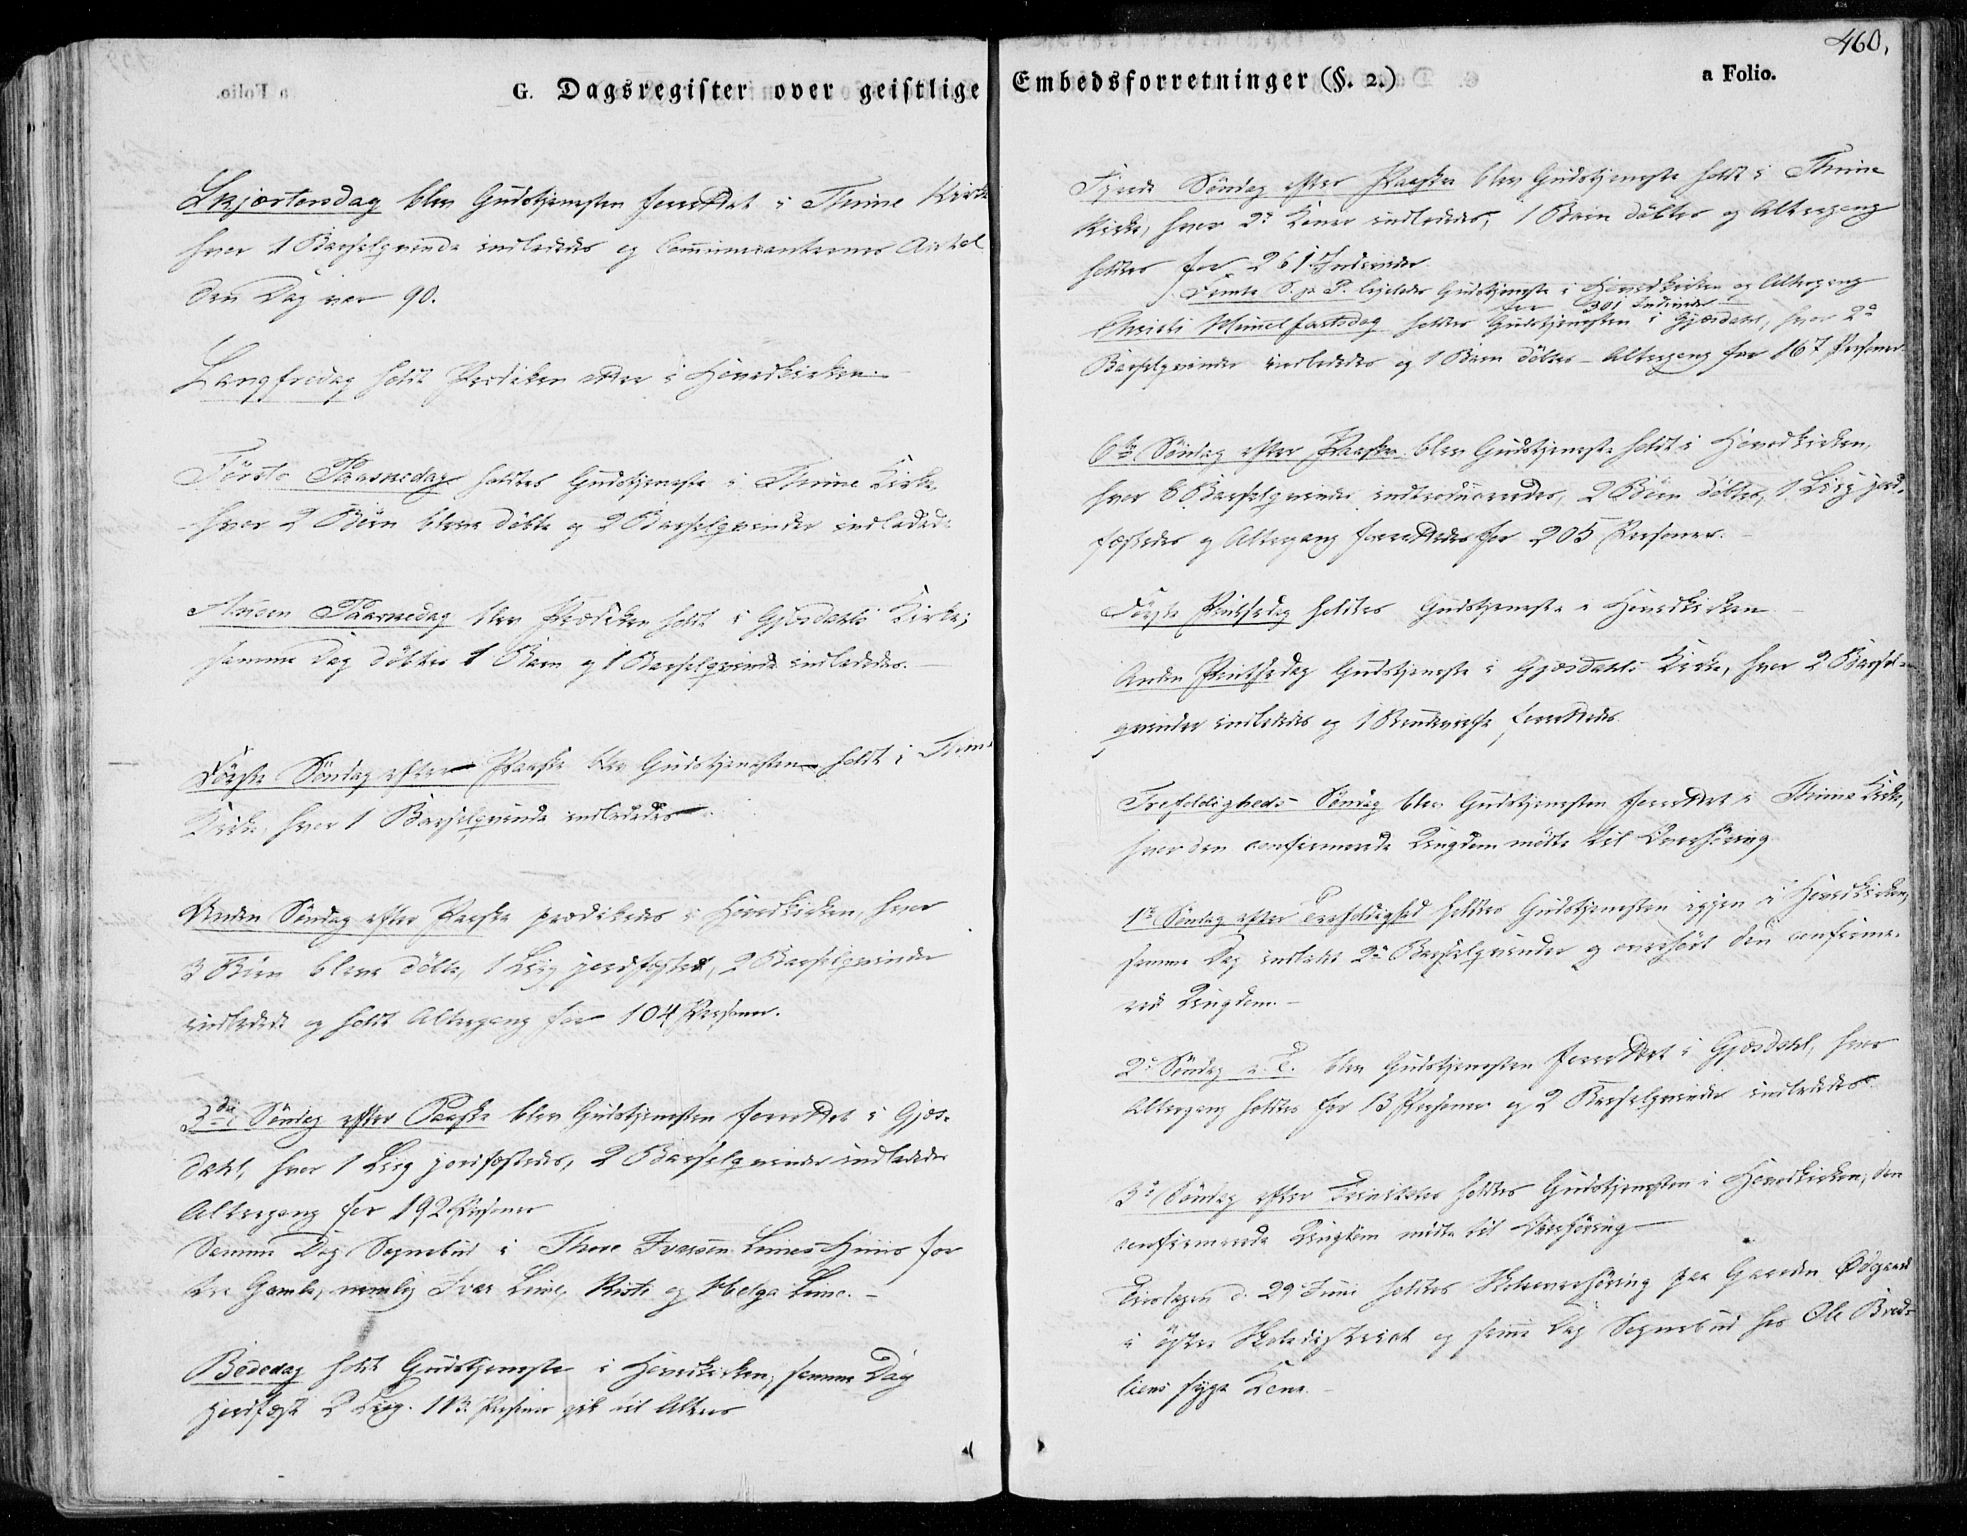 G. Dagsregister over geistlige
Skjærtorsdag blev Gudstjenesten forrettet i Thime Kirke
hvor 1 Barselqvinde indlededes og Communicanternes Antal
den Dag var 90.
Langfredag holdt Prædiken i Hovedkirken.
Förste Paaskedag holdtes Gudstjeneste i Thime Kirke,
hvor 2 Börn bleve döbte og 2 Barselqvinder indledede
Anden Paaskedag blev Prædiken holdt i Gjæsdahls Kirke;
samme Dag döbtes 1 Barn og 1 Barselqvinde indlededes.
Förste Söndag efter Paaske blev Gudstjenesten holdt i Thime
Kirke, hvor 1 Barselqvinde indlededes.
Anden Söndag efter Paaske prædikedes i Hovedkirken, hvor
3 Börn bleve döbte, 1 Liig jordfæstet, 2 Barselqvinder
indledede og holdt Altergang for 104 Personer.
3die Söndag efter Paaske blev Gudstjenesten forrettet i Gjæs-
dahl, hvor 1 Liig jordfæstedes, 2 Barselqvinder indledede
Altergang for 192 Personer
Samme Dag Sognebud i Thore Ivarsen Limes Huus for
tre Gamle, nemlig Ivar Lime, og Helga Lime. -
Bededag holdt Gudstjeneste i Hovedkirken; samme Dag
jordfæst 2 Liig. 113 Personer gik til Alters
460.
Embedsforretninger (§. 2.)
a Folio.
Fjerde Söndag efter Paaske blev Gudstjeneste holdt i Thime
Kirke, hvor 2de Koner indlededes, 1 Barn döbtes og Altergang
holdtes for 261 Individer.
Femte S. p. P. Gudstjeneste i Hovedkirken og Altergang
for 301 Individer
Christi Himmelfartsdag holdtes Gudstjenesten i Gjæsdahl, hvor 2de
Barselqvinder indlededes og 1 Barn döbtes - Altergang for 167 Personer
6te Söndag efter Paaske blev Gudstjeneste holdt i Hovedkirken,
hvor 6 Barselqvinder introduceredes, 2 Börn döbtes, 1 Liig jord-
fæstedes og Altergang forrettedes for 205 Personer. -
Förste Pintsedag holdtes Gudstjeneste i Hovedkirken -
Anden Pintsedag Gudstjeneste i Gjæsdahls Kirke, hvor 2 Barsel-
qvinder indlededes og 1 Brudevielse forrettedes
Trefoldigheds Söndag blev Gudstjenesten forrettet i Thime Kirke,
hvor den confirmerede Ungdom mödte til Overhöring
1ste Söndag efter Trefoldighed holdtes Gudstjenesten igjen i Hovedkirken,
samme Dag indledet 2de Barselqvinder og overhört den confirme-
rede Ungdom. -
2d Söndag e. T. blev Gudstjenesten forrettet i Gjæsdahl, hvor
Altergang holdtes for 13 Personer og 2 Barselqvinder indlededes
3d Söndag efter Trinitatis holdtes Gudstjenesten i Hovedkirken, den
confirmerede Ungdom mödte til Overhöring -
Tirsdagen d. 29 Juni holdtes Skoleoverhöring paa Gaarden Ødgaard
i östre Skoledistrict og samme Dag Sognebud hos Ole Bred-
liens syge Kone. -